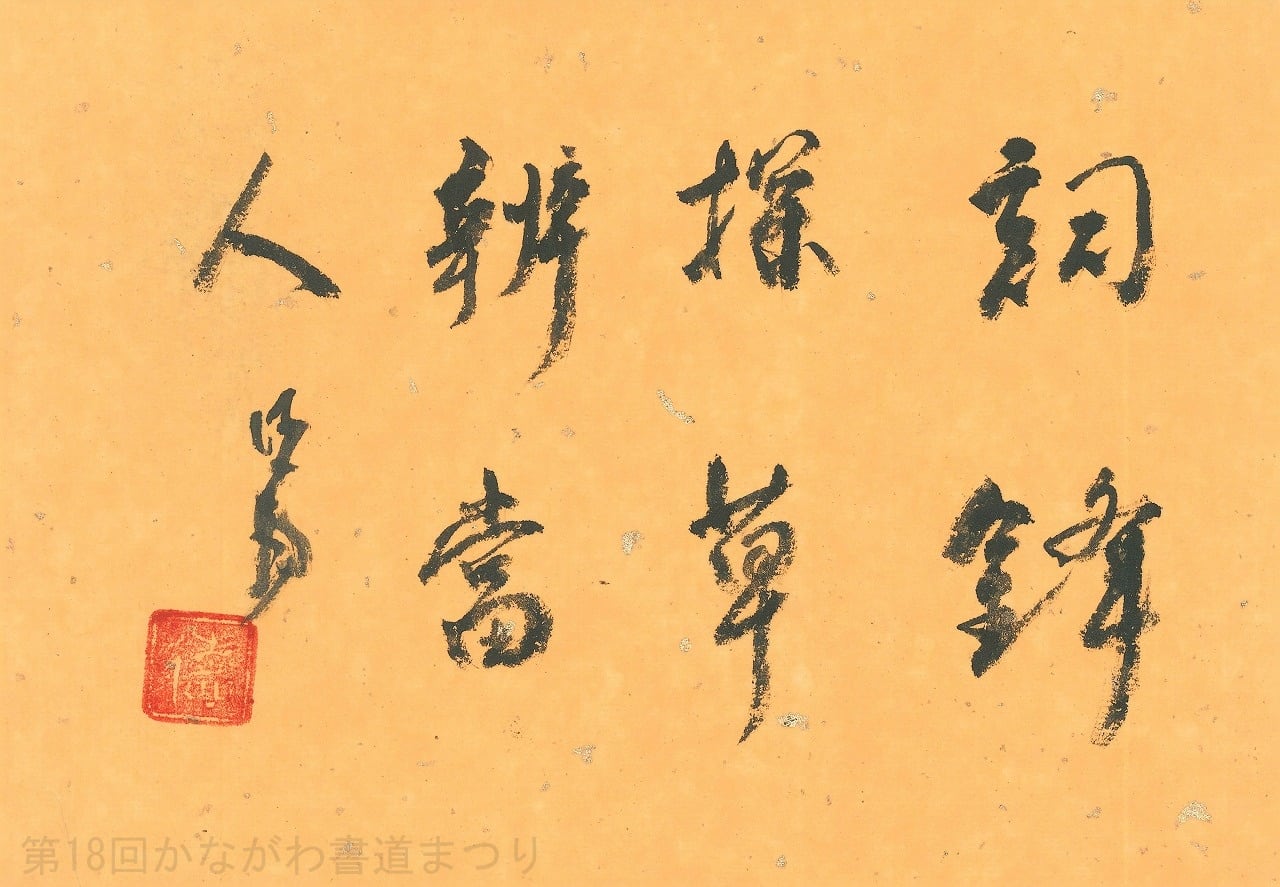 詞鋒
探草
辨當
人
第18回かながわ書道まつり